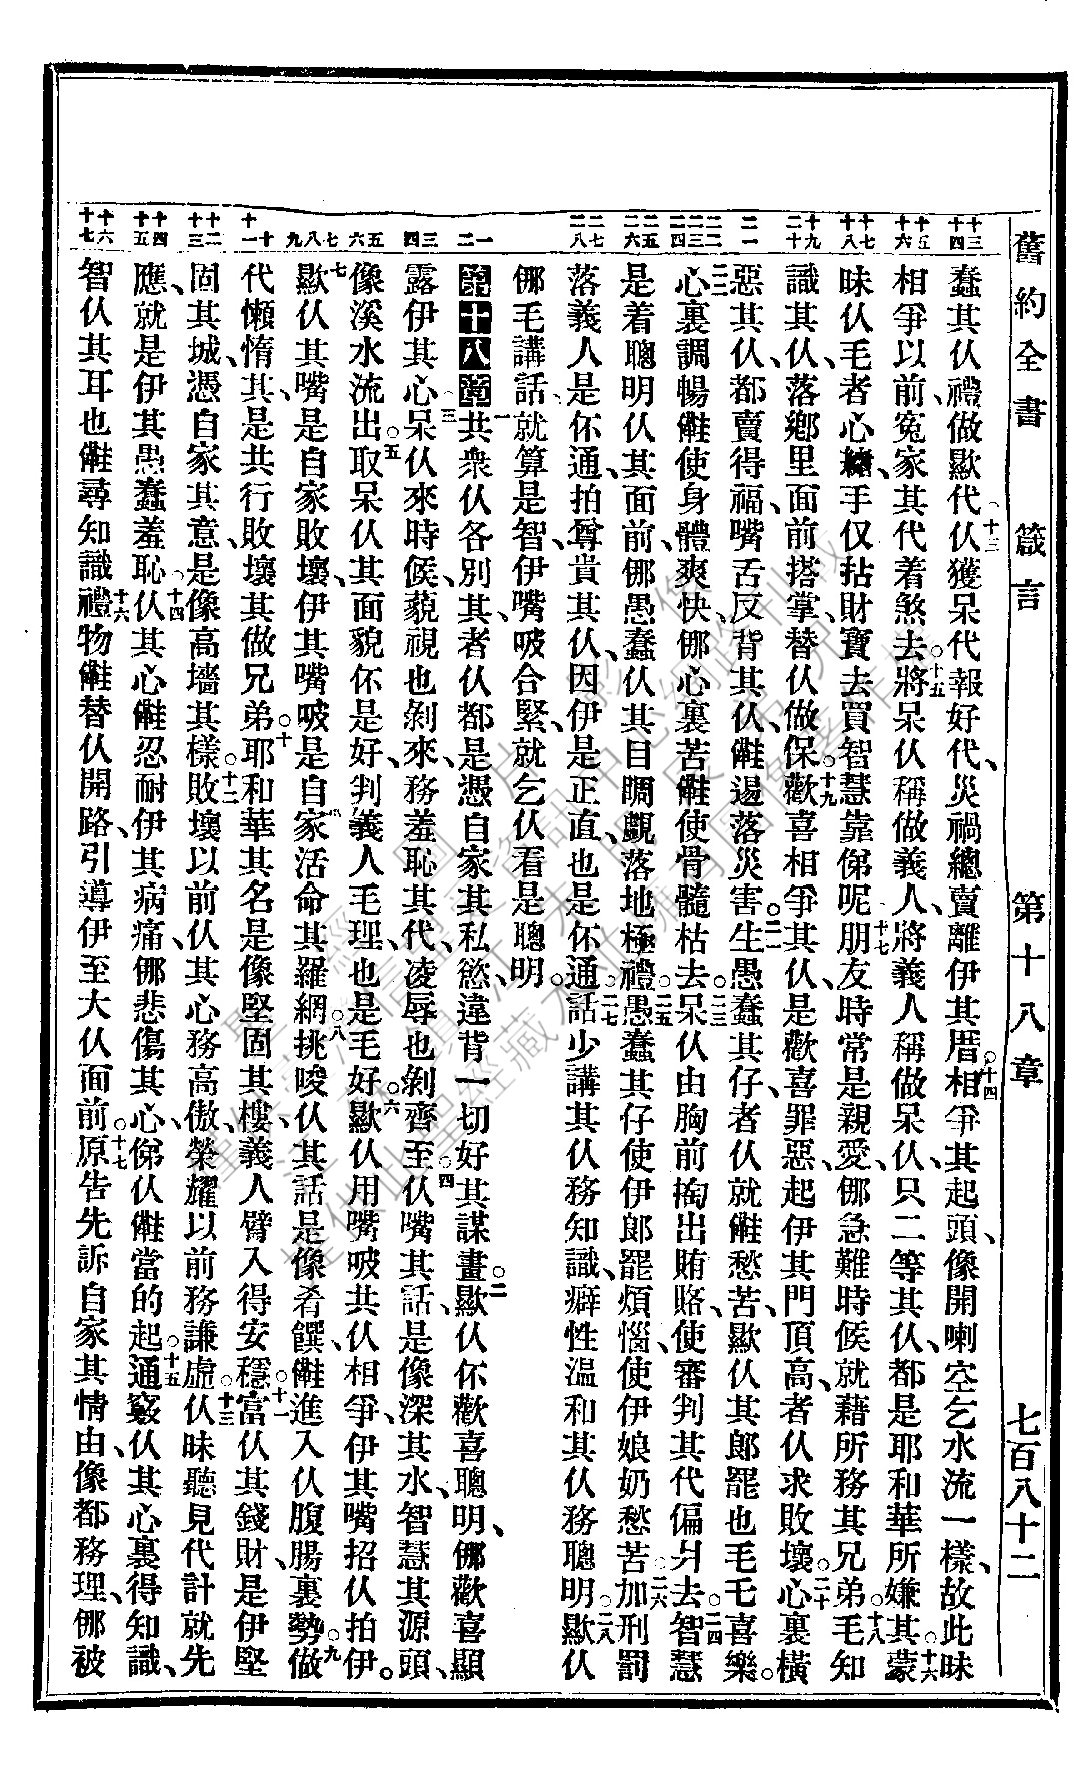 舊約全書　箴言　第十八章　七百八十二
十三　十四
十五　十六
十七　十八
十九　二十
二一
二二　二三　二四
二五　二六
二七　二八
一　二
三　四
五　六
七　八　九
十　十一
十二　十三
十四　十五
十六　十七
蠢其仫禮做歟代仫獲呆代報好代、災禍總賣離伊其厝。十四相爭其起頭、像開喇空乞水流一樣、故此昧
相爭以前、冤家其代着煞去。十五將呆仫稱做義人、將義人稱做呆仫、只二等其仫、都是耶和華所嫌其。十六蒙
昧仫毛者心、手仅拈財寶去買智慧靠俤呢。十七朋友時常是親愛、㑚急難時候就藉所務其兄弟。十八毛知
識其仫、落鄉里面前搭掌、替仫做保。十九歡喜相爭其仫、是歡喜罪惡、起伊其門頂高、者仫求敗壞。二十心裏橫
惡其仫、都賣得福、嘴舌反背其仫、㑚遏落災害。二一生愚蠢其仔、者仫就愁苦、歟仫其郎罷也毛乇喜樂。
二二心裏調暢、使身體爽快、㑚心裏苦、使骨髓枯去。二三呆仫由胸前掏出賄賂、使審判其代偏去。二四智慧
是着聰明仫其面前、㑚愚蠢仫其目睭覷落地極。二五愚蠢其仔、使伊郎罷煩惱、使伊娘奶愁苦。二六加刑罰
落義人是伓通、拍尊貴其仫、因伊是正直、也是伓通。二七話少講其仫務知識、癖性溫和其仫務聰明。二八歟仫
㑚毛講話、就算是智、伊嘴㖞合緊、就乞仫看是聰明。
第十八章　一共衆仫各別其、者仫都是憑自家其私慾、違背一切好其謀畫。二歟仫伓歡喜聰明、㑚歡喜顯
露伊其心。三呆仫來時候、藐視也剝來、務羞恥其代、凌辱也剝齊至。四仫嘴其話、是像深其水、智慧其源頭、
像溪水流出。五取呆仫其面貌伓是好、判義人毛理、也是毛好。六歟仫用嘴㖞共仫相爭、伊其嘴招仫拍伊。
七歟仫其嘴、是自家敗壞、伊其嘴㖞、是自家活命其羅網。八挑唆仫其話、是像肴饌、進入仫腹腸裏勢。九做
代懶惰其、是共行敗壞其做兄弟。十耶和華其名、是像堅固其樓、義人臂入得安穩。十一富仫其錢財、是伊堅
固其城、憑自家其意、是像高墻其樣。十二敗壞以前、仫其心務高傲、榮耀以前務謙虛。十三仫昧聽見代計就先
應、就是伊其愚蠢羞恥。十四仫其心忍耐伊其病痛、㑚悲傷其心、俤仫當的起。十五通竅仫其心裏得知識、
智仫其耳也尋知識。十六禮物替仫開路、引導伊至大仫面前。十七原告先訴自家其情由、像都務理、㑚被